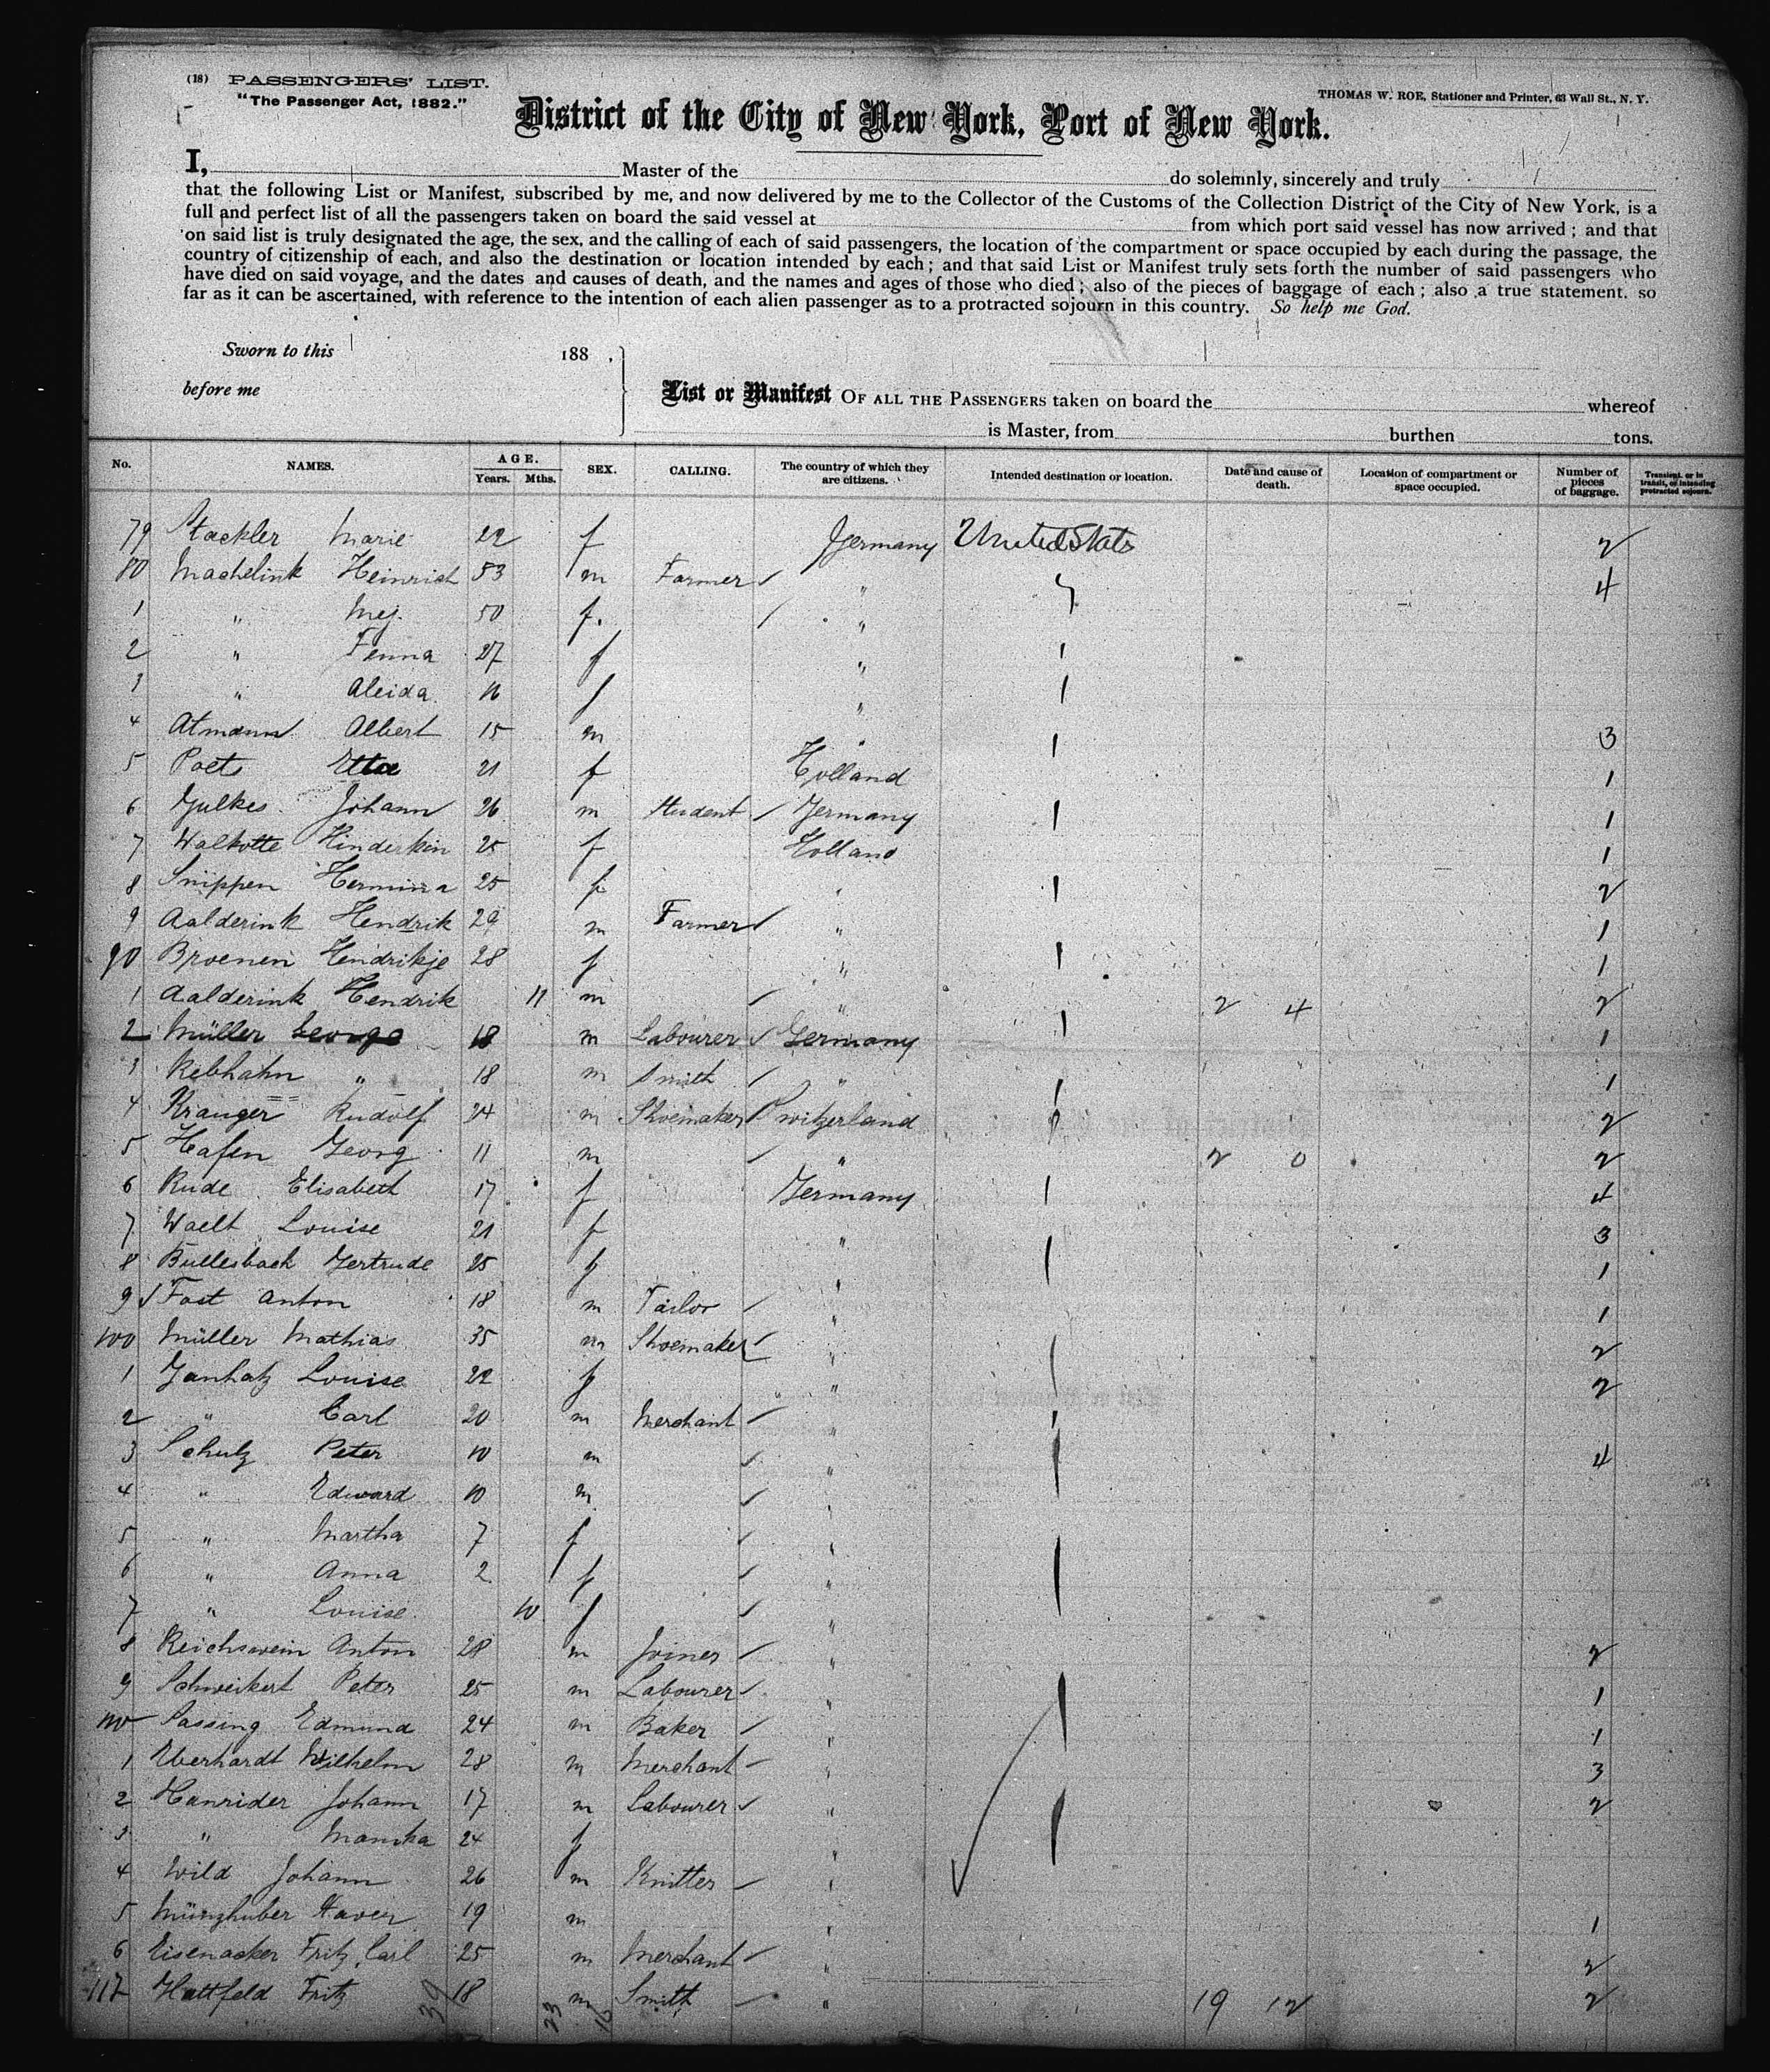 (18) PASSENGERS' LIST.
"The Passenger Act, 1882."
THOMAS W. ROE, Stationer and Printer, 63 Wall St., N. Y.
District of the City of New York, Port of New York.
I, Master of the do solemnly, sincerely and truly
that the following List or Manifest, subscribed by me, and now delivered by me to the Collector of the Customs of the Collection District of the City of New York, is a
full and perfect list of all the passengers taken on board the said vessel at from which port said vessel has now arrived; and that
on said list is truly designated the age, the sex, and the calling of each of said passengers, the location of the compartment or space occupied by each during the passage, the
country of citizenship of each, and also the destination or location intended by each; and that said List or Manifest truly sets forth the number of said passengers who
have died on said voyage, and the dates and causes of death, and the names and ages of those who died; also of the pieces of baggage of each; also a true statement. so
far as it can be ascertained, with reference to the intention of each alien passenger as to a protracted sojourn in this country. So help me God.
Sworn to this 188 .
before me
List or Manifest OF ALL THE PASSENGERS taken on board the whereof
is Master, from burthen tons.
No. NAMES. AGE. Years. Mths. SEX. CALLING. The country of which they are citizens. Intended destination or location. Date and cause of death. Location of compartment or space occupied. Number of pieces of baggage. Transient, or in transit, or intending protracted sojourn.
79 Stackler Marie 22 f Germany United States 2
80 Machelink Heinrich 53 m Farmer " 4
1 " Mej. 50 f. "
2 " Fenna 27 f "
3 " Aleida f "
4 Atmann Albert 15 m 3
5 Poets 21 f Holland 1
6 Gulkes Johann 26 m Student Germany 1
7 Walkotte Hinderkien 25 f Holland 1
8 Snippen Hermina 25 f " 2
9 Aalderink Hendrik 29 m Farmer " 1
90 Broenen Hendrikje 28 f " 1
1 Aalderink Hendrik 11 m " 2 4 2
2 Müller George 18 m Labourer Germany 1
3 Rebhahn " 18 m Smith " 1
4 Kranger Rudolf 24 m Shoemaker Switzerland 2
5 Hafen Georg 11 m " 2 0 2
6 Rude Elisabeth 17 f Germany 4
7 Waelt Louise 21 f " 3
8 Bullesbach Gertrude 25 f " 1
9 Fast Anton 18 m Tailor " 1
100 Müller Mathias 35 m Shoemaker " 2
1 Ganhatz Louise 22 f " 2
2 " Carl 20 m Merchant "
3 Schulz Peter 10 m " 4
4 " Edward 10 m "
5 " Martha 7 f "
6 " Anna 2 f "
7 " Louise 10 f "
8 Reichswein Anton 28 m Joiner " 2
9 Schweikert Peter 25 m Labourer " 1
110 Sassing Edmund 24 m Baker " 1
1 Eberhardt Wilhelm 28 m Merchant " 3
2 Hanrider Johann 17 m Labourer " 2
3 " 24 f "
4 Wild Johann 26 m Knitter "
5 Münzhuber Xaver 19 m " 1
6 Eisenacker Fritz, Carl 25 m Merchant " 2
117 Hattfeld Fritz 18 m Smith " 19 12 2
39 23 16